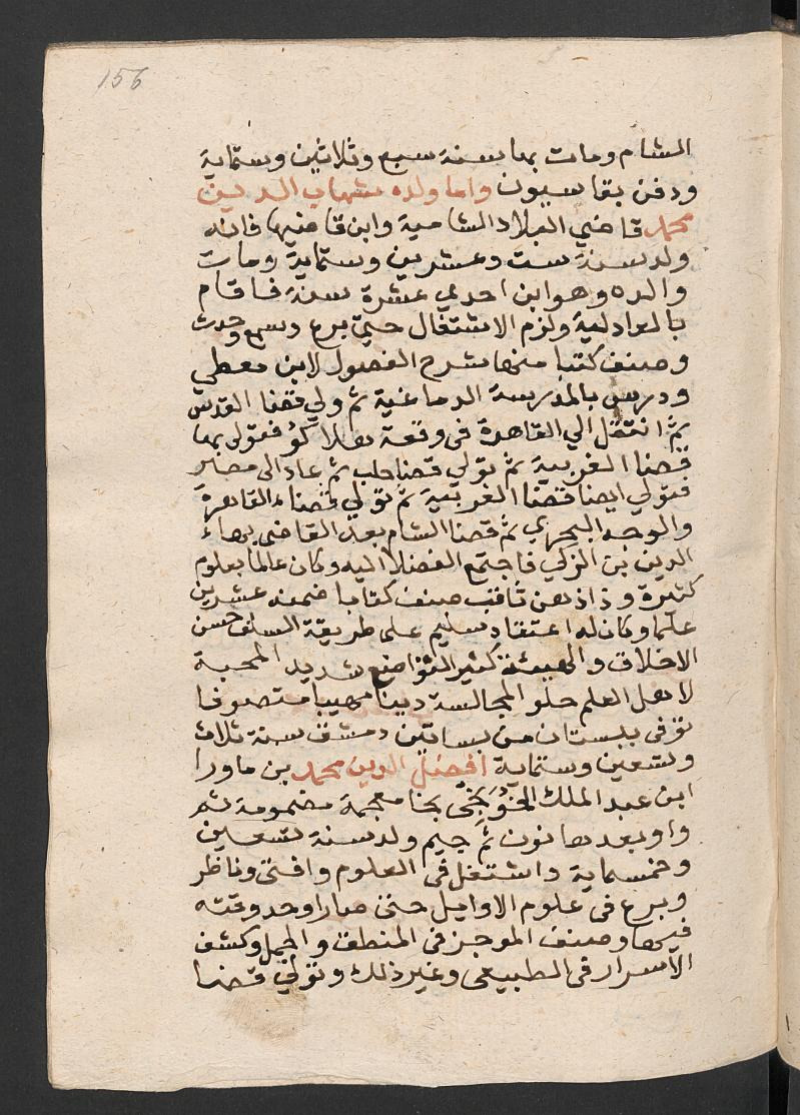 156
الشام ومات بها سنة سبع وثلاثين وستماية
ودفن بقاسيون واما ولده شهاب الدين
محمد قاضي البلاد الشامية وابن قاضيها فانه
ولد سنة ست وعشرين وستماية ومات
والده وهو ابن احدي عشرة سنة فاقام
بالعادلية ولزم الاشتغال حتي برع وسمع وحدث
وصنف كتبا منها شرح الفصول لابن معطي
ودرس بالمدرسة الدماغية ثم ولي قضا القدس
ثم انتقل الي القاهرة في وقعة هلاكو فتولي بها
قضا الغربية ثم تولي قضا حلب ثم عاد الى مصر
فتولي ايضا قضا الغربية ثم تولي قضاء القاهرة
والوجه البحري ثم قضا الشام بعد القاضي بهاء
الدين بن الزكي فاجتمع الفضلا اليه وكان عالما بعلوم
كثيرة وذا ذهن ثاقب صنف كتابا ضمنه عشرين
علما وكان له اعتقاد سليم على طريقة السلف حسن
الاخلاق والهيئة كثير التواضع شديد المحبة
لاهل العلم حلو المجالسة دينا مهيبا متصوفا
توفي ببستان من بساتين دمشق سنة ثلاث
وتسعين وستماية افضل الدين محمد بن ماورا
ابن عبد الملك الخونجي بخا معجمة مضمومة ثم
واو بعدها نون ثم جيم ولد سنة تسعين
وخمسماية واشتغل في العلوم وافتى وناظر
وبرع في علوم الاوايل حتى صار اوحد وقته
فيها وصنف الموجز في المنطق والجمل وكشف
الاسرار في الطبيعي وغير ذلك وتولي قضا